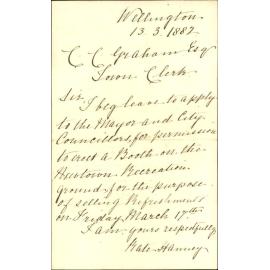 Wellington.
13.3.1882.
C. C. Graham Esq
Town Clerk
Sir
I beg leave to apply
to the Mayor and City
Councillors, for permission
to erect a Booth on the
Newtown Recreation
ground, for the purpose
of selling Refreshments
on Friday March 17th
I am yours respectfully
Kate Hanney